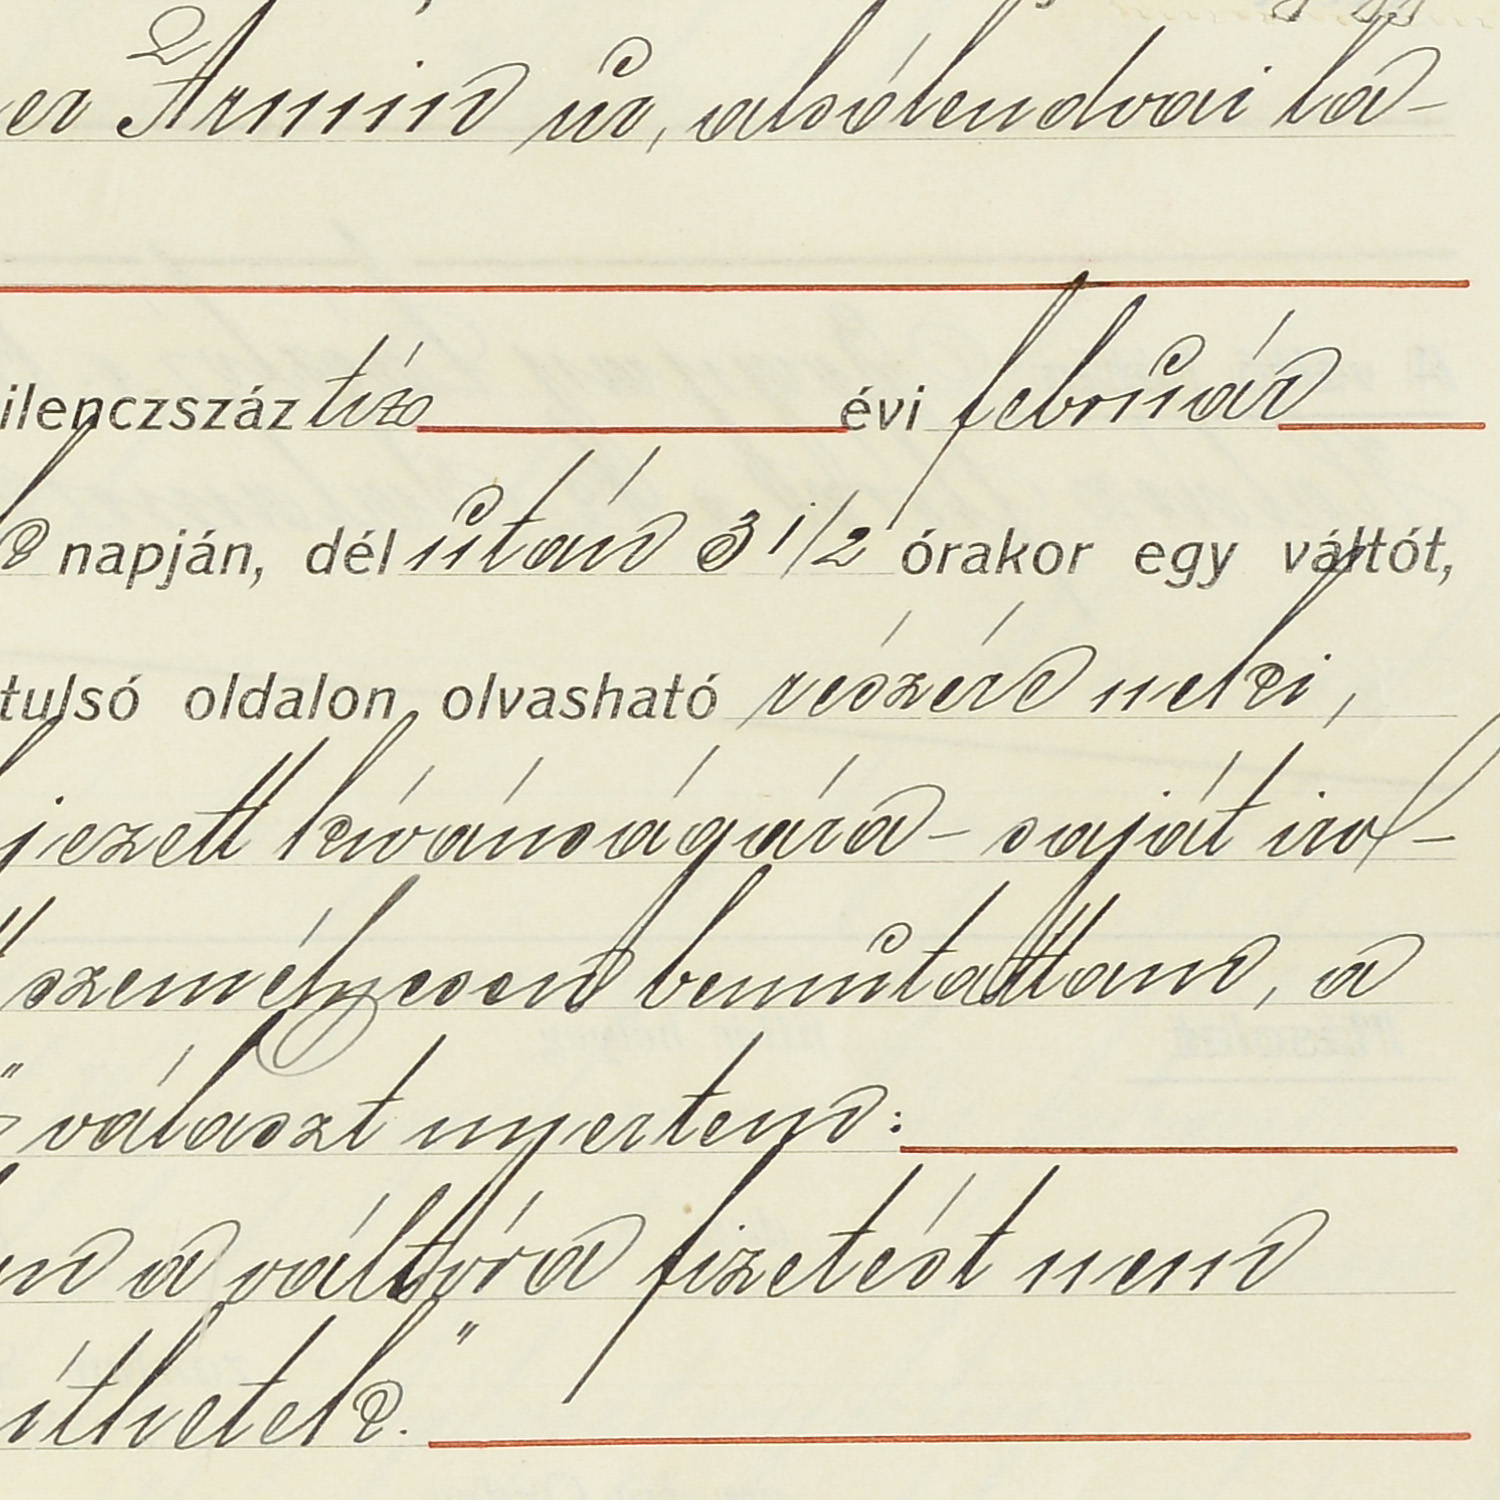 er Ármin úr, alsólendvai la-
ilenczszáz tiz évi február
napján, dél után 3 1/2 órakor egy váltót,
tulsó oldalon olvasható részért neki,
jezett kívánságára - saját iro-
személyesen bemutattam, a
" választ nyertem:
a váltóra fizetést nem
íthetek."